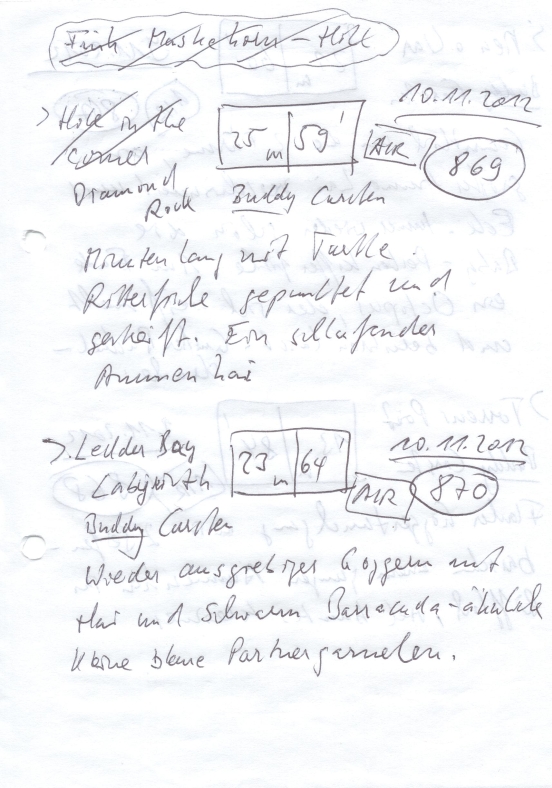 Hole in the
Corner
25 m 59'
AIR
10.11.2012
869
Diamond
Rock
Buddy Carsten
Minuten lang mit Turtle
Ritterfische gepunktet und
gestreift. Ein schlafender
Ammenhai
Ledder Bay
Labyrinth
23 m 64'
AIR
10.11.2012
870
Buddy Carsten
Wieder ausgiebiges mit
Hai und Schwarm Barracuda-ähnliche
Kleine blaue Partnergarnelen.